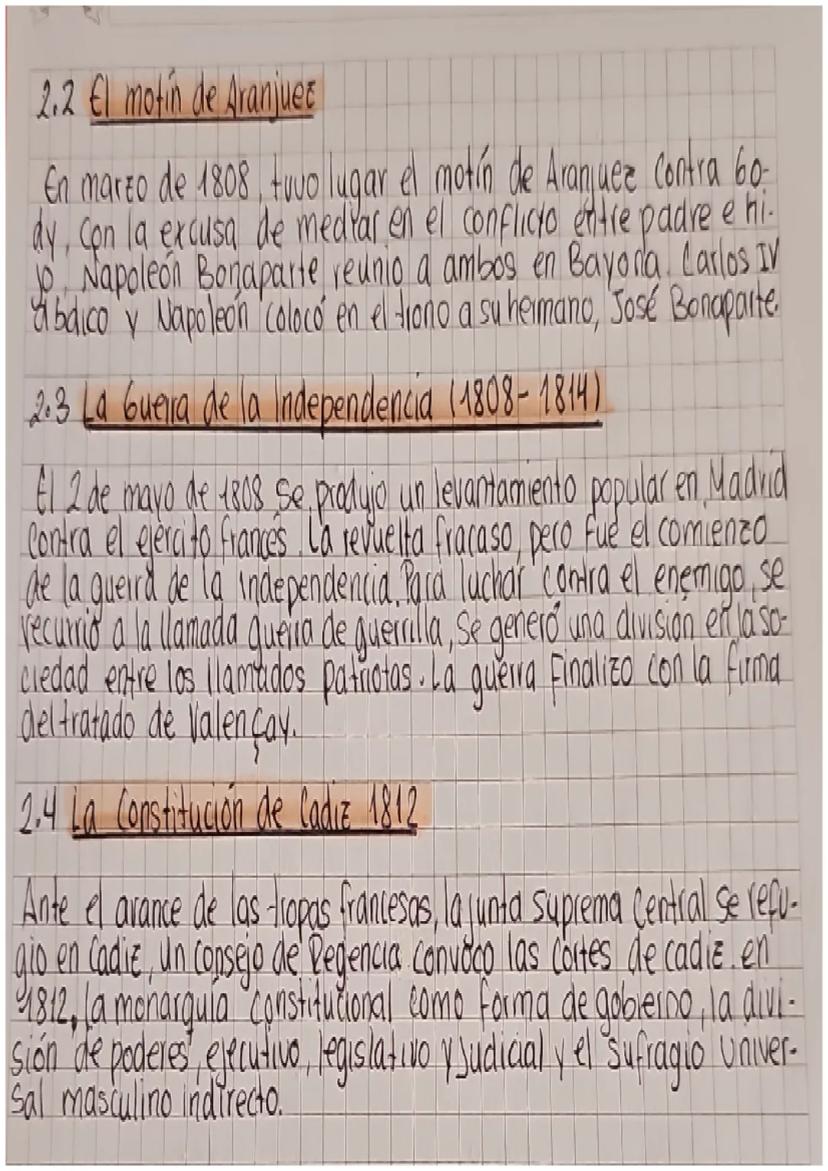 2.2 El motín de Aranjuez
En marzo de 1808, tuvo lugar el motín de Aranjuez contra Go-
dy, con la excusa de mediar en el conflicto entre padre e hi-
jo, Napoleón Bonaparte reunio a ambos en Bayona. Carlos IV
abdico y Napoleón colocó en el trono a su hermano, José Bonaparte.
2.3 La Guerra de la Independencia (1808-1814)
El 2 de mayo de 1808 se produjo un levantamiento popular en Madrid
contra el ejército francés. La revuelta fracaso, pero fue el comienzo
de la guerra de la independencia. Para luchar contra el enemigo, se
recurrió a la llamada guerra de guerrilla, se generó una división en la so-
ciedad entre los llamados patriotas. La guerra finalizo con la firma
del tratado de Valençay.
2.4 La Constitución de Cadiz 1812
Ante el avance de las tropas francesas, la junta suprema Central se refu-
gio en Cadiz, un consejo de Regencia convoco las cortes de cadiz. en
1812, la monarquía constitucional como forma de gobierno, la divi-
sión de poderes, ejecutivo, legislativo y judicial y el sufragio univer-
sal masculino indirecto.